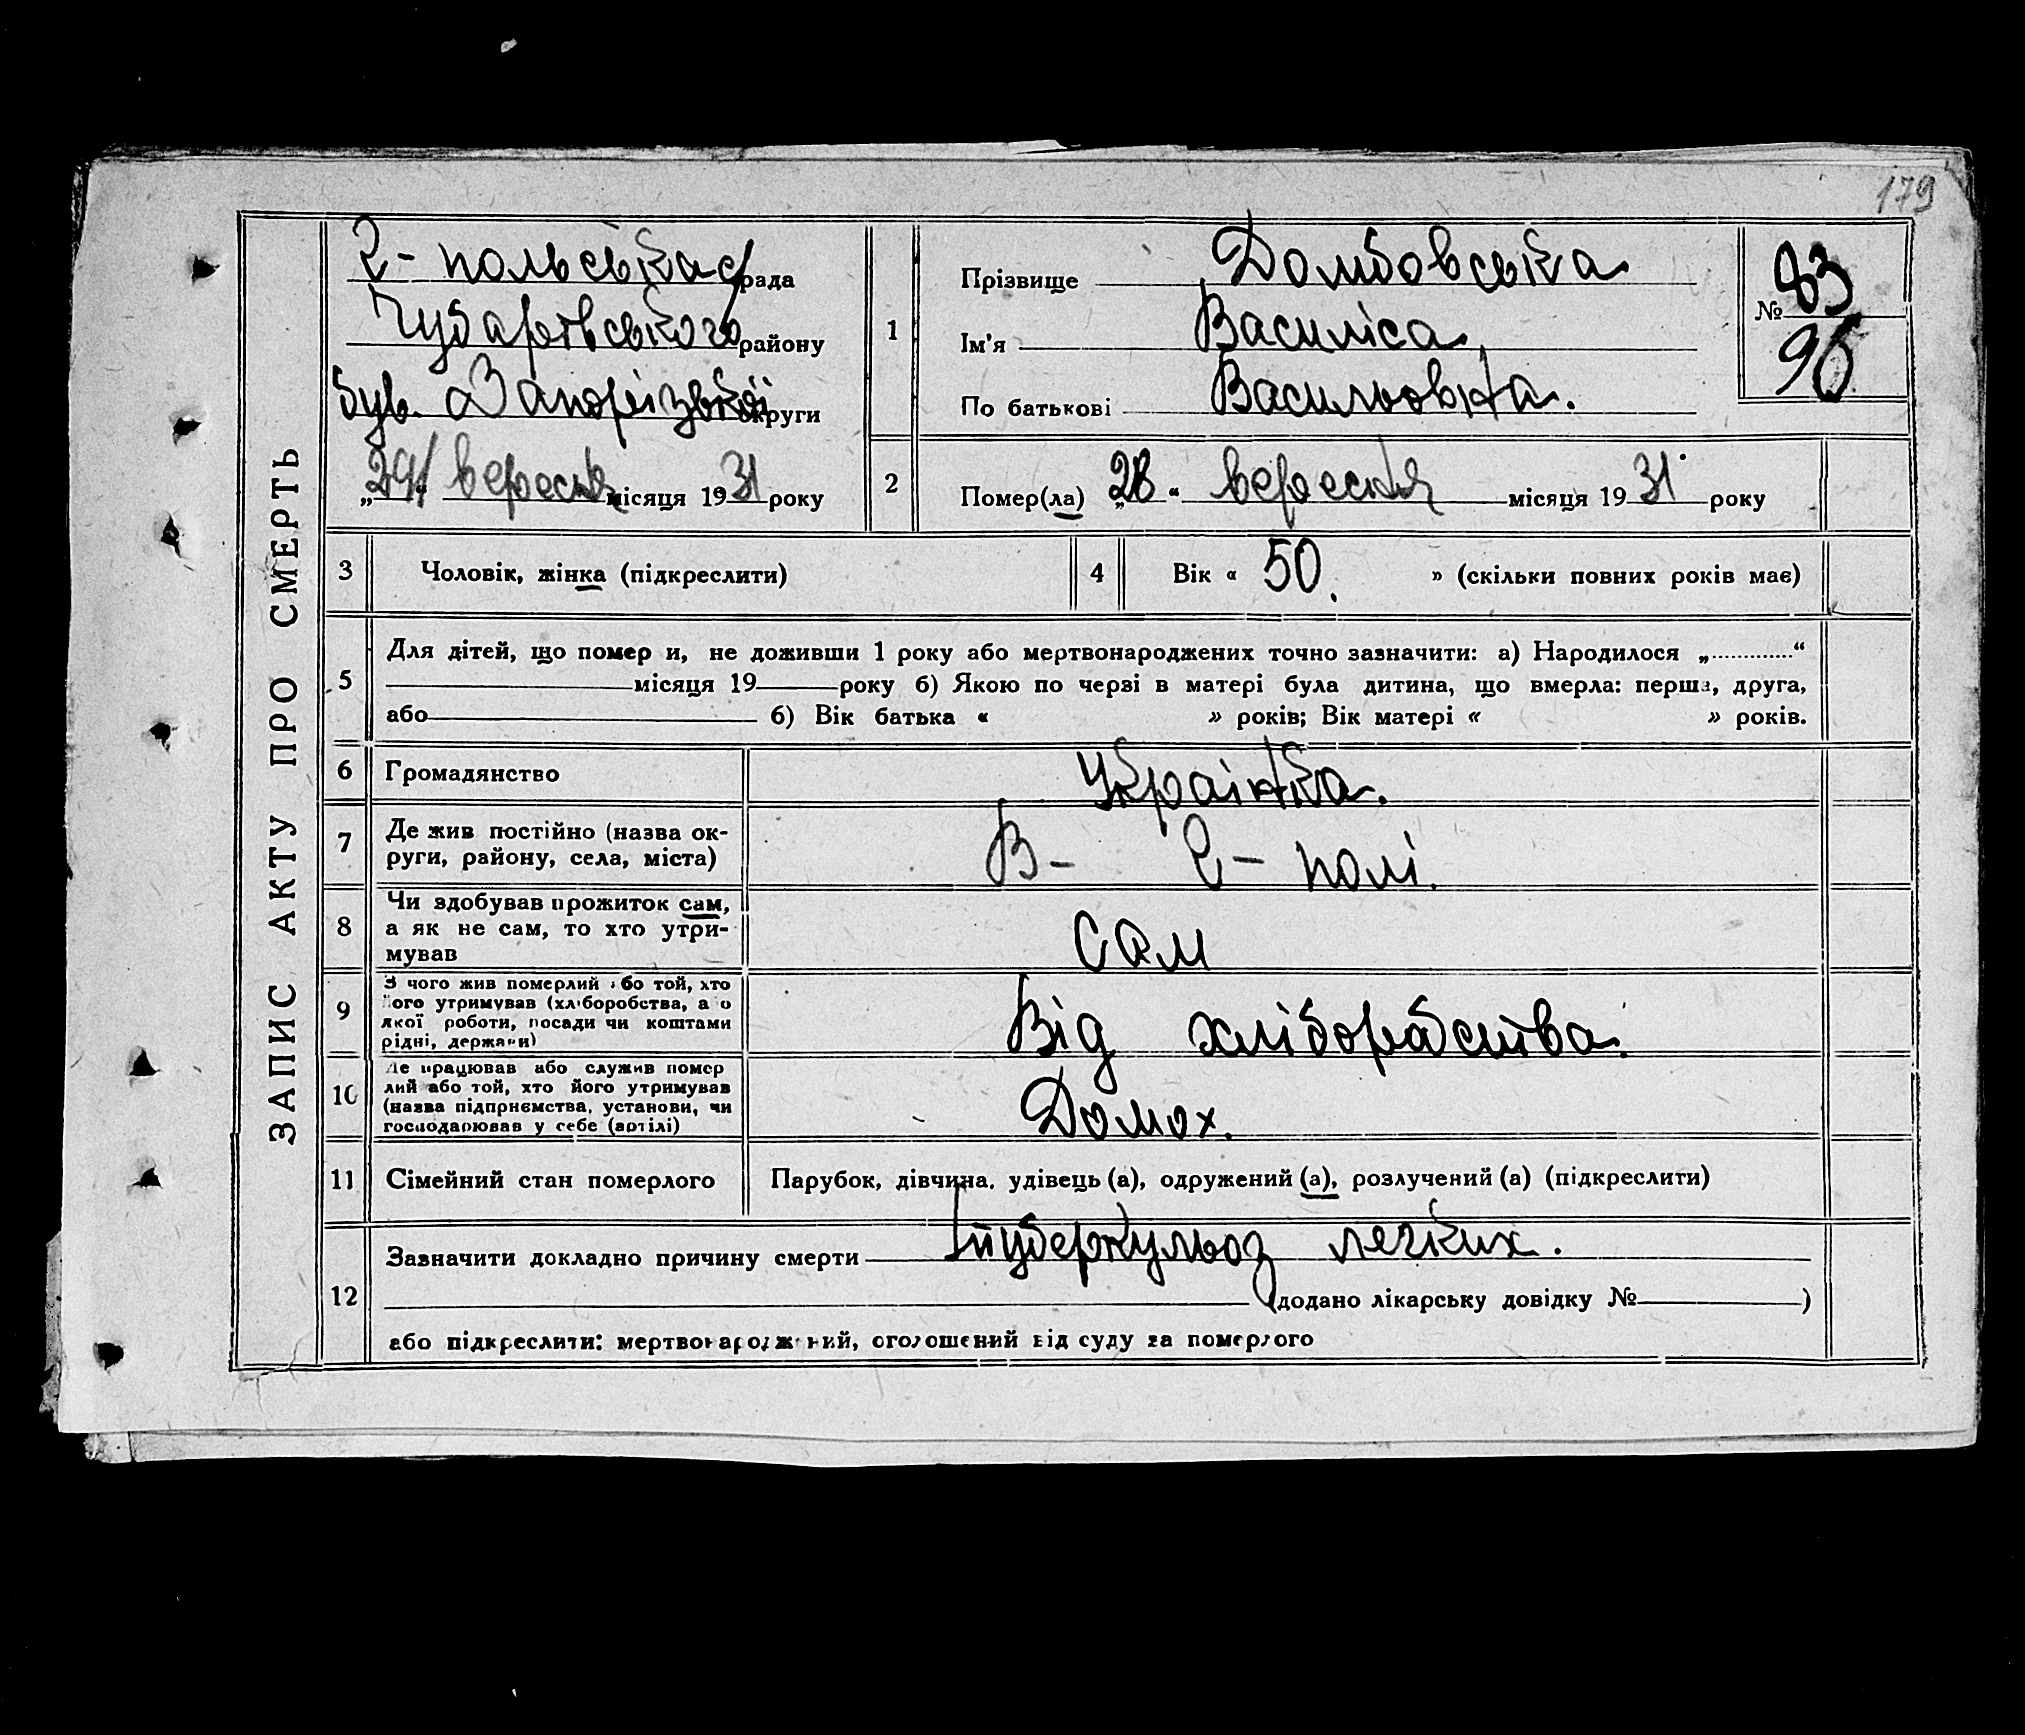 179
ЗАПИС АКТУ ПРО СМЕРТЬ
Г-польська с/рада
Чубарівського району
був. Запорізької округи
„29“ вересня місяця 1931 року
1
Прізвище Домбовська
Ім'я Василіса
По батькові Васильовна.
№ 83
96
2
Помер(ла) „28“ вересня місяця 1931 року
3 Чоловік, жінка (підкреслити)
4 Вік « 50. » (скільки повних років має)
5 Для дітей, що померли, не доживши 1 року або мертвонароджених точно зазначити: а) Народилося „ “
місяця 19 року б) Якою по черзі в матері була дитина, що вмерла: перша, друга,
або б) Вік батька « » років; Вік матері « » років.
6 Громадянство Українка.
7 Де жив постійно (назва ок-
руги, району, села, міста) В- Г-полі.
8 Чи здобував прожиток сам,
а як не сам, то хто утри-
мував сам
9 З чого жив померлий або той, хто
його утримував (хліборобства, або
якої роботи, посади чи коштами
рідні, держави) Від хліборобства.
10 Де працював або служив помер
лий або той, хто його утримував
(назва підприємства, установи, чи
господарював у себе (артілі) Домох.
11 Сімейний стан померлого Парубок, дівчина, удівець (а), одружений (а), розлучений (а) (підкреслити)
12 Зазначити докладно причину смерти туберкульоз легких.
(додано лікарську довідку № )
або підкреслити: мертвонароджений, оголошений від суду за померлого